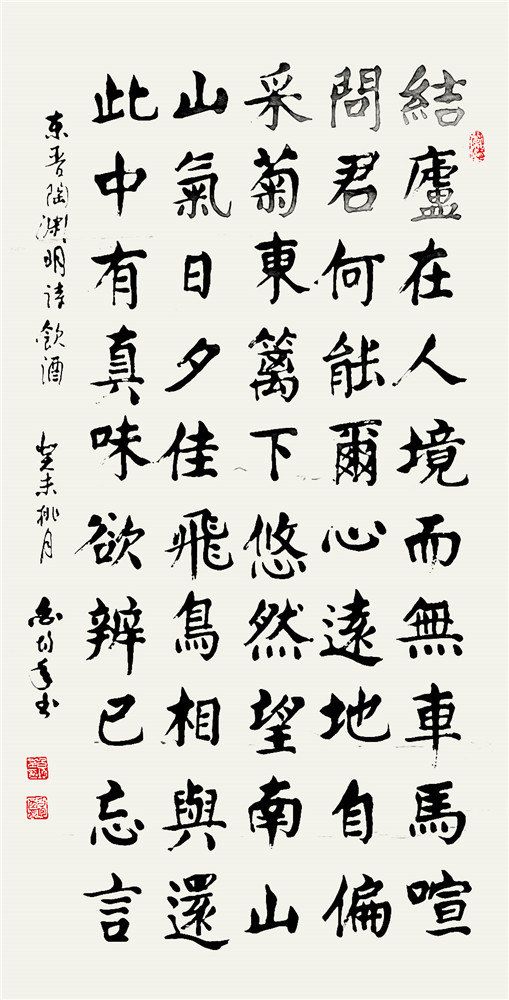 結廬在人境而無車馬喧
問君何能爾心遠地自偏
采菊東籬下悠然望南山
山氣日夕佳飛鳥相與還
此中有真味欲辨已忘言
东晋陶渊明诗飲酒 癸未桃月